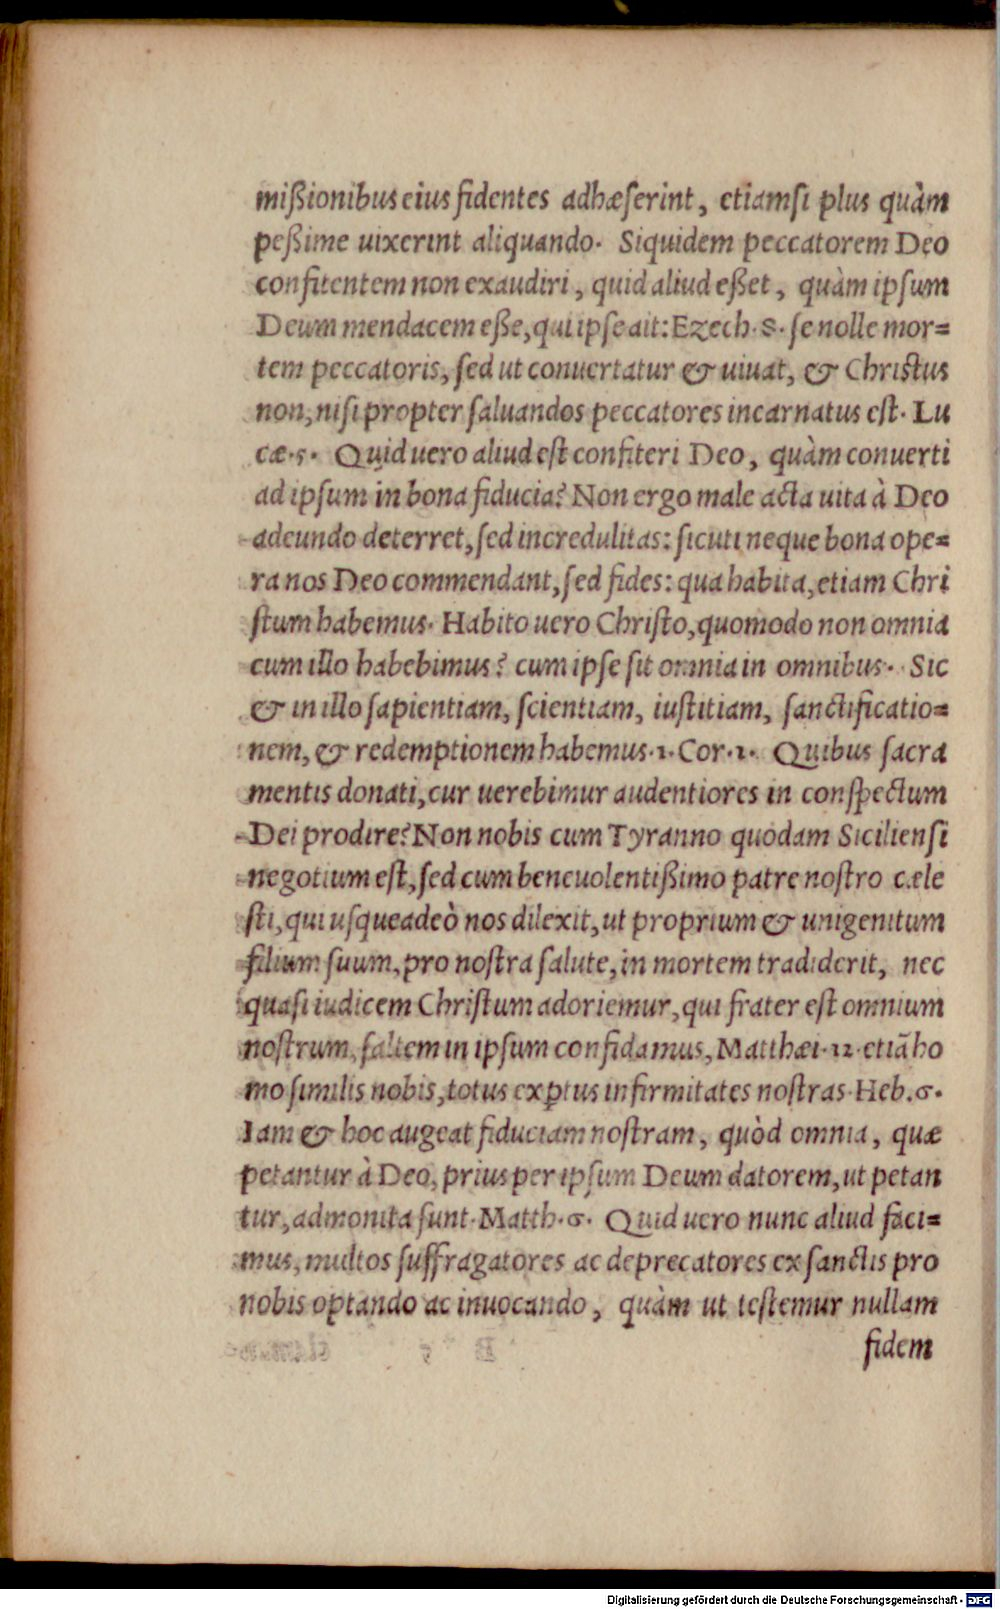 mißionibus eius fidentes adhæſerint, etiamſi plus quàm
peßime uixerint aliquando. Siquidem peccatorem Deo
confitentem non exaudiri, quid aliud eßet, quàm ipſum
Deum mendacem eße, qui ipſe ait: Ezech. 8. ſe nolle mor=
tem peccatoris, ſed ut conuertatur & uiuat, & Christus
non, niſi propter ſaluandos peccatores incarnatus eſt. Lu
cæ. 5. Quid uero aliud eſt confiteri Deo, quàm conuerti
ad ipſum in bona fiducia? Non ergo male acta uita à Deo
adeundo deterret, ſed incredulitas: ſicuti neque bona ope=
ra nos Deo commendant, ſed fides: qua habita, etiam Chri
ſtum habemus. Habito uero Chriſto, quomodo non omnia
cum illo habebimus? cum ipſe ſit omnia in omnibus. Sic
& in illo ſapientiam, ſcientiam, iuſtitiam, ſanctificatio=
nem, & redemptionem habemus. 1. Cor. 1. Quibus ſacra
mentis donati, cur uerebimur audentiores in conſpectum
Dei prodire? Non nobis cum Tyranno quodam Sicilienſi
negotium eſt, ſed cum beneuolentißimo patre noſtro cæle
ſti, qui uſqueadeò nos dilexit, ut proprium & unigenitum
filium ſuum, pro noſtra ſalute, in mortem tradiderit, nec
quaſi iudicem Chriſtum adoriemur, qui frater eſt omnium
noſtrum, ſaltem in ipſum confidamus, Matthæi. 12. etiã ho
mo ſimilis nobis, totus exꝑtus infirmitates noſtras. Heb. 6.
Iam & hoc augeat fiduciam noſtram, quòd omnia, quæ
petantur à Deo, prius per ipſum Deum datorem, ut petan
tur, admonita ſunt. Matth. 6. Quid uero nunc aliud faci=
mus, multos ſuffragatores ac deprecatores ex ſanctis pro
nobis optando ac inuocando, quàm ut teſtemur nullam
fidem
Digitalisierung gefördert durch die Deutsche Forschungsgemeinschaft - DFG